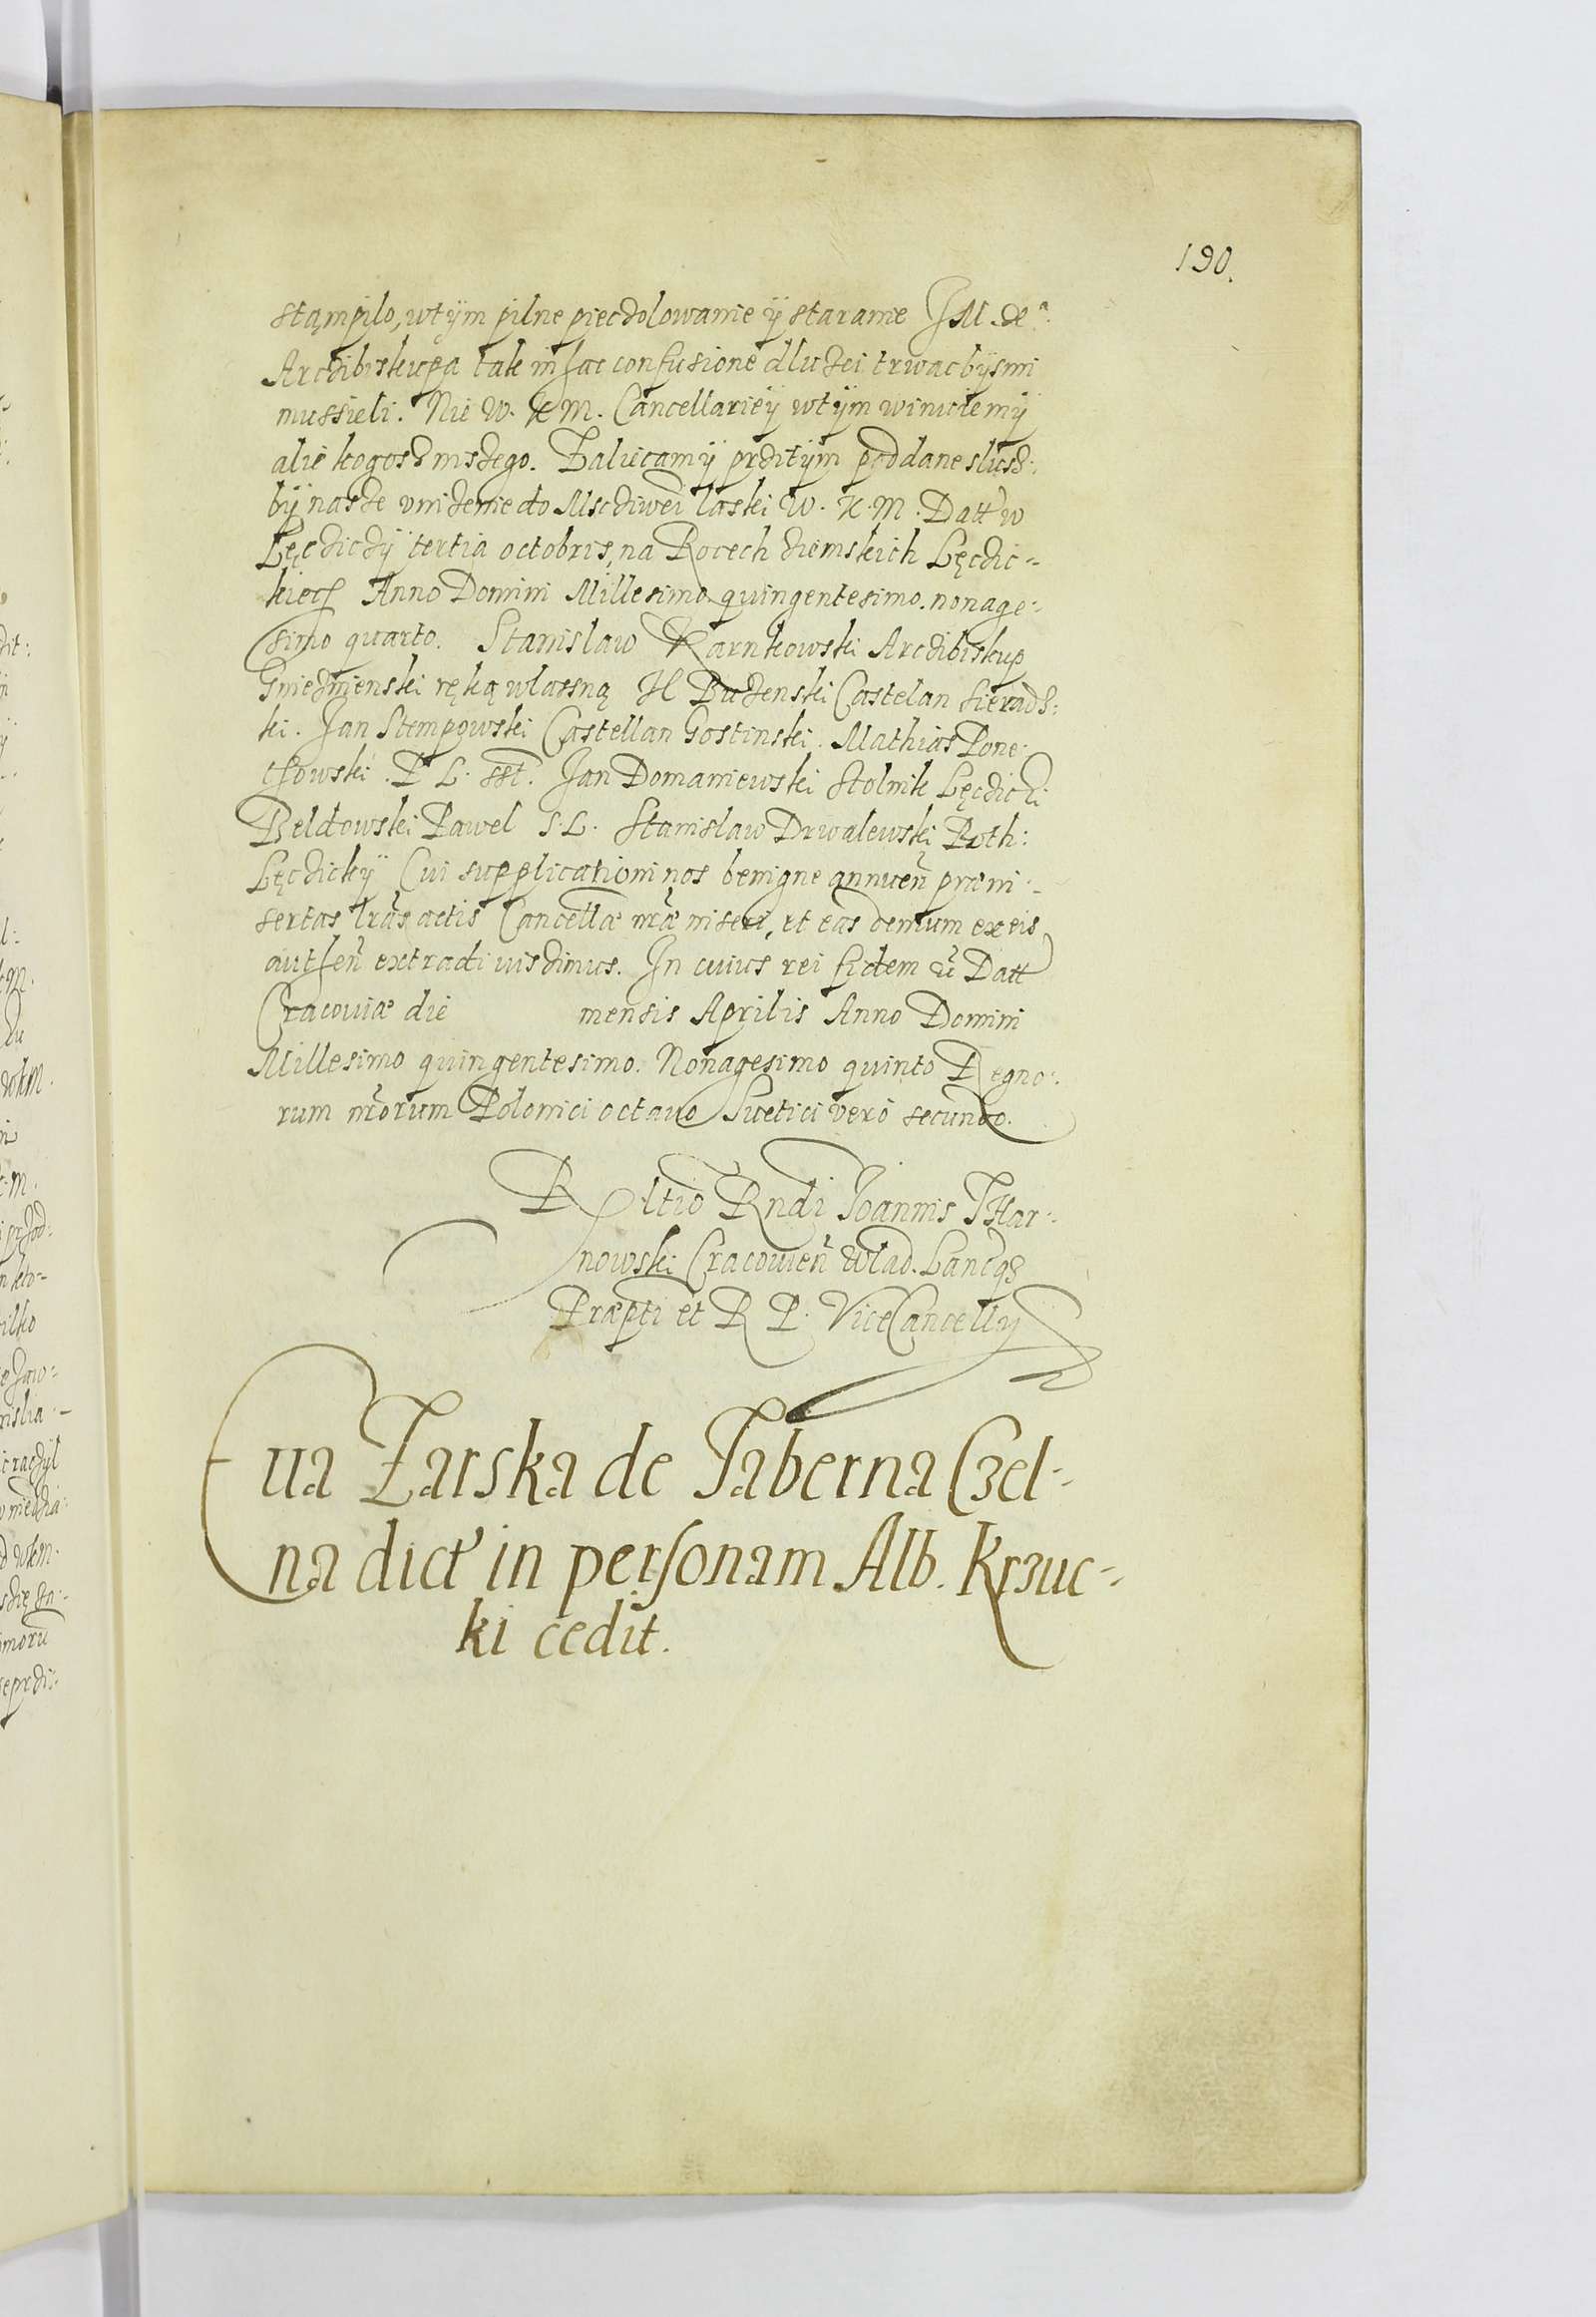 190.
stąmpilo, wtÿm pilne pieczolowanie ÿ staranie JM. X.ª
Arczibiskupa tak in hac confusione dluzei trwac bÿsmi
mussieli. Nie W. K M. Cancellarieÿ wtÿm winuiemÿ
alie kogosz inszego. Zaliecamÿ przitÿm poddane slusz:
bÿ nasze vnizenie do Msciwei laski W. K. M. Datt w
Lęcziczÿ tertia octobris, na Rocech ziemskich Lęczic-
kiech Anno Domini Millesimo quingentesimo. nonage-
simo quarto. Stanislaw Karnkowski Arczibiskup
Gnieznienski ręką wlassną H Buzenski Castelan Sieradz:
ki. Jan Stempowski Castellan Gostinski. Mathias Pone-
thowski. P L. sst. Jan Domaniewski Stolnik Lęczicki
Beldowski Pawel S. L. Stanislaw Drwalewski Poth:
Lęczickÿ Cui supplicationi nos benigne annuen̄ præin-
sertas lr̄as actis Cancellæ nr̄æ inseri, et eas demum ex eis
authen̄ extradi iussimus. In cuius rei fidem ū Datt
Cracouiæ die mensis Aprilis Anno Domini
Millesimo quingentesimo. Nonagesimo quinto Regno-
rum nr̄orum Polonici octauo Suetici vero secundo.
Rltio Rndi Joannis THar-
nowski Cracouien̄ Wlad. Lancz
Præpti et R P. ViceCancellÿ
Eua Żarska de Taberna Czel-
na dict in personam Alb. Krzuc-
ki cedit.